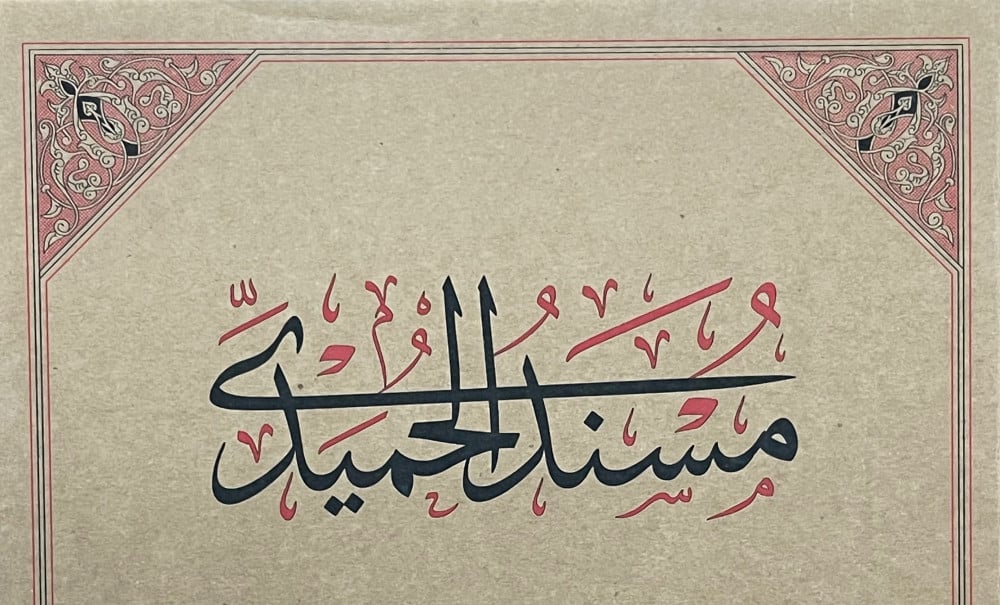 مُسْنَدُ الحُمَيْدِيِّ